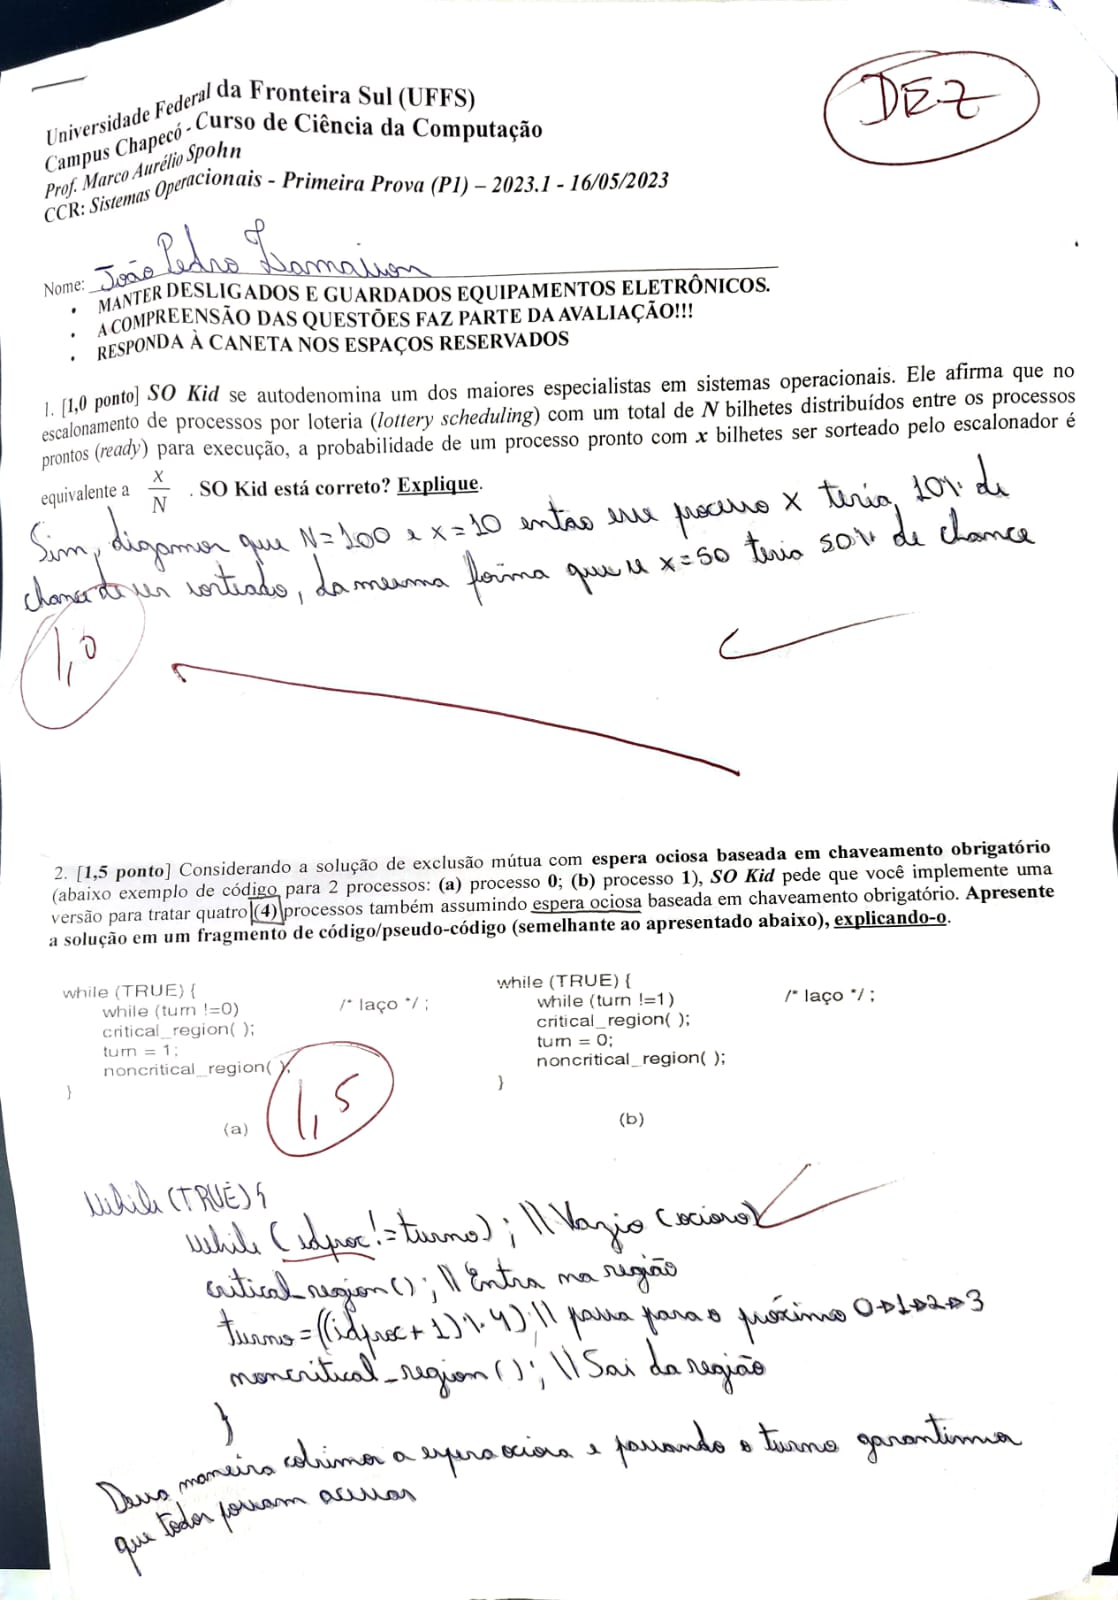 DEZ
Universidade Federal da Fronteira Sul (UFFS)
Campus Chapecó - Curso de Ciência da Computação
Prof. Marco Aurélio Spohn
CCR: Sistemas Operacionais - Primeira Prova (P1) – 2023.1 - 16/05/2023
Nome: João Pedro
• MANTER DESLIGADOS E GUARDADOS EQUIPAMENTOS ELETRÔNICOS.
• A COMPREENSÃO DAS QUESTÕES FAZ PARTE DA AVALIAÇÃO!!!
• RESPONDA À CANETA NOS ESPAÇOS RESERVADOS
1. [1,0 ponto] SO Kid se autodenomina um dos maiores especialistas em sistemas operacionais. Ele afirma que no
escalonamento de processos por loteria (lottery scheduling) com um total de N bilhetes distribuídos entre os processos
prontos (ready) para execução, a probabilidade de um processo pronto com x bilhetes ser sorteado pelo escalonador é
equivalente a x/N . SO Kid está correto? Explique.
Sim, digamos que N=100 e x=10 então esse processo x teria 10% de
chance de ser sorteado, da mesma forma que se x=50 teria 50% de chance
1,0
2. [1,5 ponto] Considerando a solução de exclusão mútua com espera ociosa baseada em chaveamento obrigatório
(abaixo exemplo de código para 2 processos: (a) processo 0; (b) processo 1), SO Kid pede que você implemente uma
versão para tratar quatro (4) processos também assumindo espera ociosa baseada em chaveamento obrigatório. Apresente
a solução em um fragmento de código/pseudo-código (semelhante ao apresentado abaixo), explicando-o.
while (TRUE) {
while (turn !=0) /* laço */ ;
critical_region( );
turn = 1;
noncritical_region( );
}
(a)
while (TRUE) {
while (turn !=1) /* laço */ ;
critical_region( );
turn = 0;
noncritical_region( );
}
(b)
1,5
While (TRUE) {
while (idproc != turno) ; // Vazio (ocioso)
critical_region() ; // Entra na região
turno = ((idproc + 1) % 4) ; // passa para o próximo 0→1→2→3
noncritical_region() ; // Sai da região
}
Dessa maneira cobrimos a espera ociosa e passando o turno garantimos
que todos possam acessar